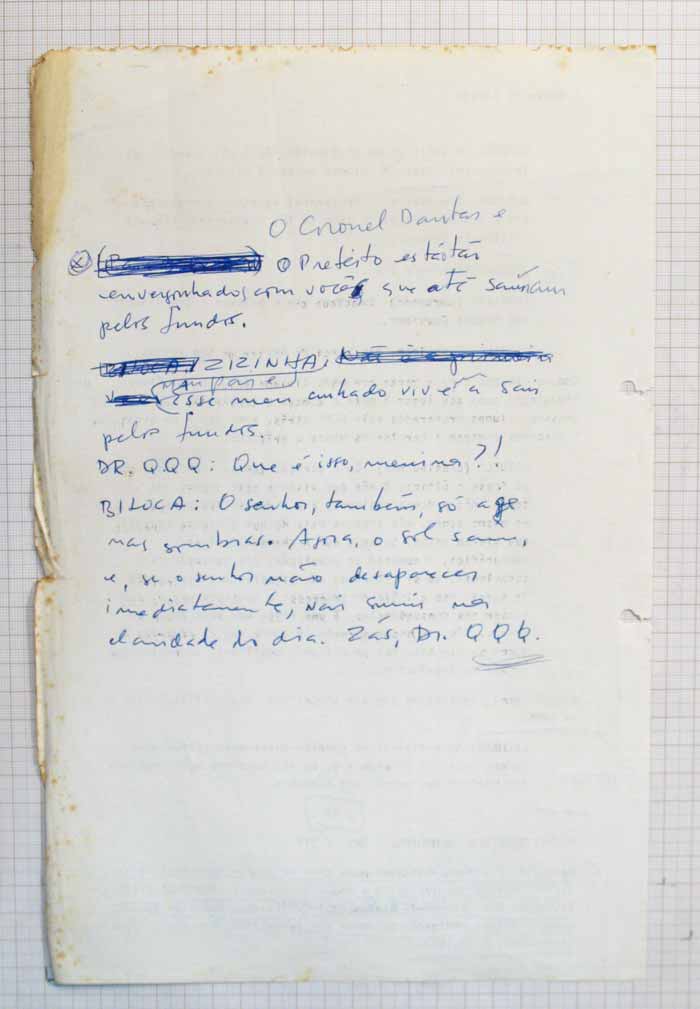 O Coronel Dantas e
(x) O Prefeito estão tão
envergonhados com você que até sairam
pelos fundos.
BILOCA / ZIZINHA: Não é a primeira
esse meu cunhado vive a sair
pelos fundos.
DR. QQQ: Que é isso, menina?!
BILOCA: O senhor, também, só age
nas sombras. Agora, o sol saiu,
e, se o senhor não desaparecer
imediatamente, vai sumir na
claridade do dia. Zás, Dr. QQQ.